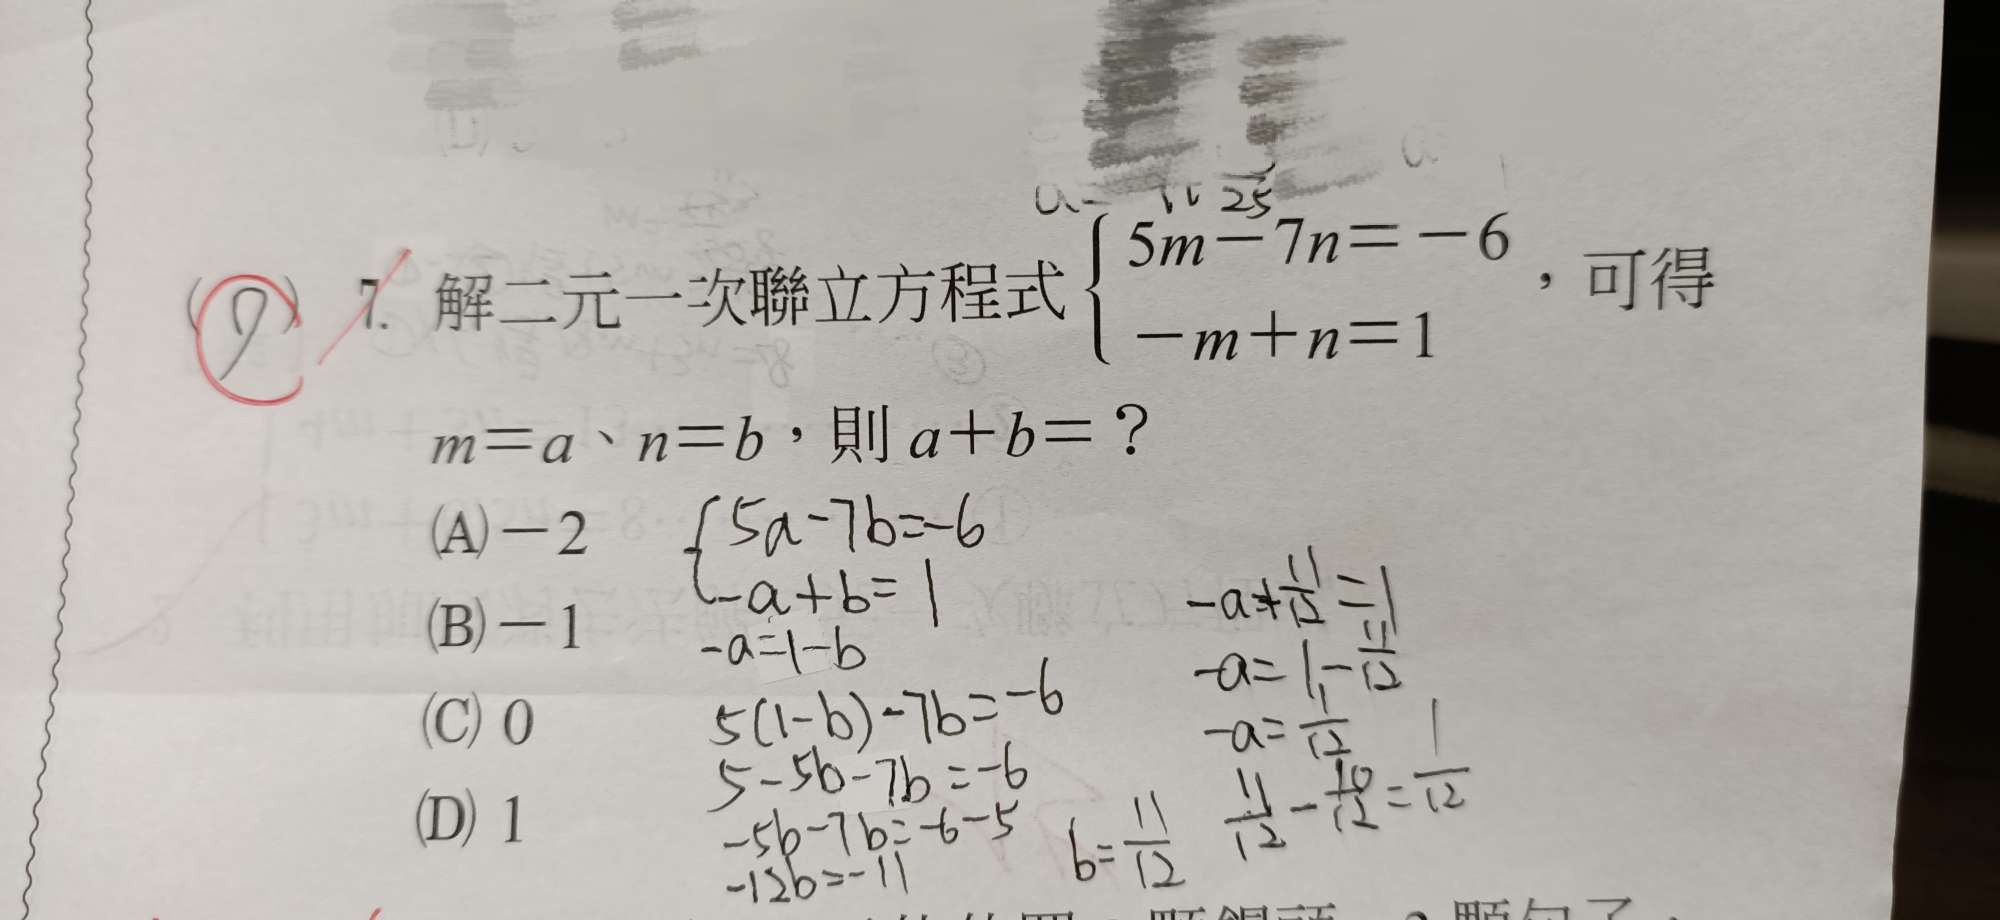 25
( ? ) 7. 解二元一次聯立方程式 { 5m－7n＝－6
－m＋n＝1 ，可得
m＝a、n＝b，則 a＋b＝？
(A)－2
(B)－1
(C) 0
(D) 1
{ 5a-7b=-6
-a+b=1
-a=1-b
5(1-b)-7b=-6
5-5b-7b=-6
-5b-7b=-6-5
-12b=-11
b=11/12
-a+11/12=1
-a=1-11/12
-a=1/12
11/12-10/12=1/12